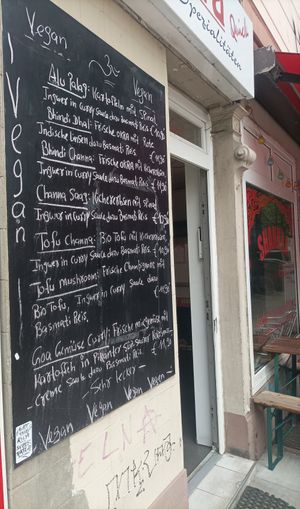 Vegan
Vegan
Vegan
Alu Palag: Kartoffeln mit Spinat
Ingwer in Curry Sauce dazu Basmati Reis
Bhindi Dhal: Frische OKRA mit Rote
Indische Linsen dazu Basmati Reis. €
Bhindi Channa: Frische OKRA mit Kichererbsen
Ingwer in Curry Sauce dazu Basmati Reis €
Channa Saag: Kichererbsen mit Spinat
Ingwer in Curry Sauce dazu Basmati Reis
Tofu Channa: Bio Tofu mit Kichererbsen
Ingwer in Curry Sauce dazu Basmati Reis. € 11,90
Tofu Mushroom: Frische Champignons mit
Bio Tofu, Ingwer in Curry Sauce dazu
Basmati Reis. € 11,90
Goa Gemüse Curry: Frische mit
Kartoffeln in Pikanter
- creme Sauce dazu Basmati Reis. € 11,90
- Sehr lecker -
Vegan Vegan Vegan Vegan -
Quick
Spezialitäten
ELNA